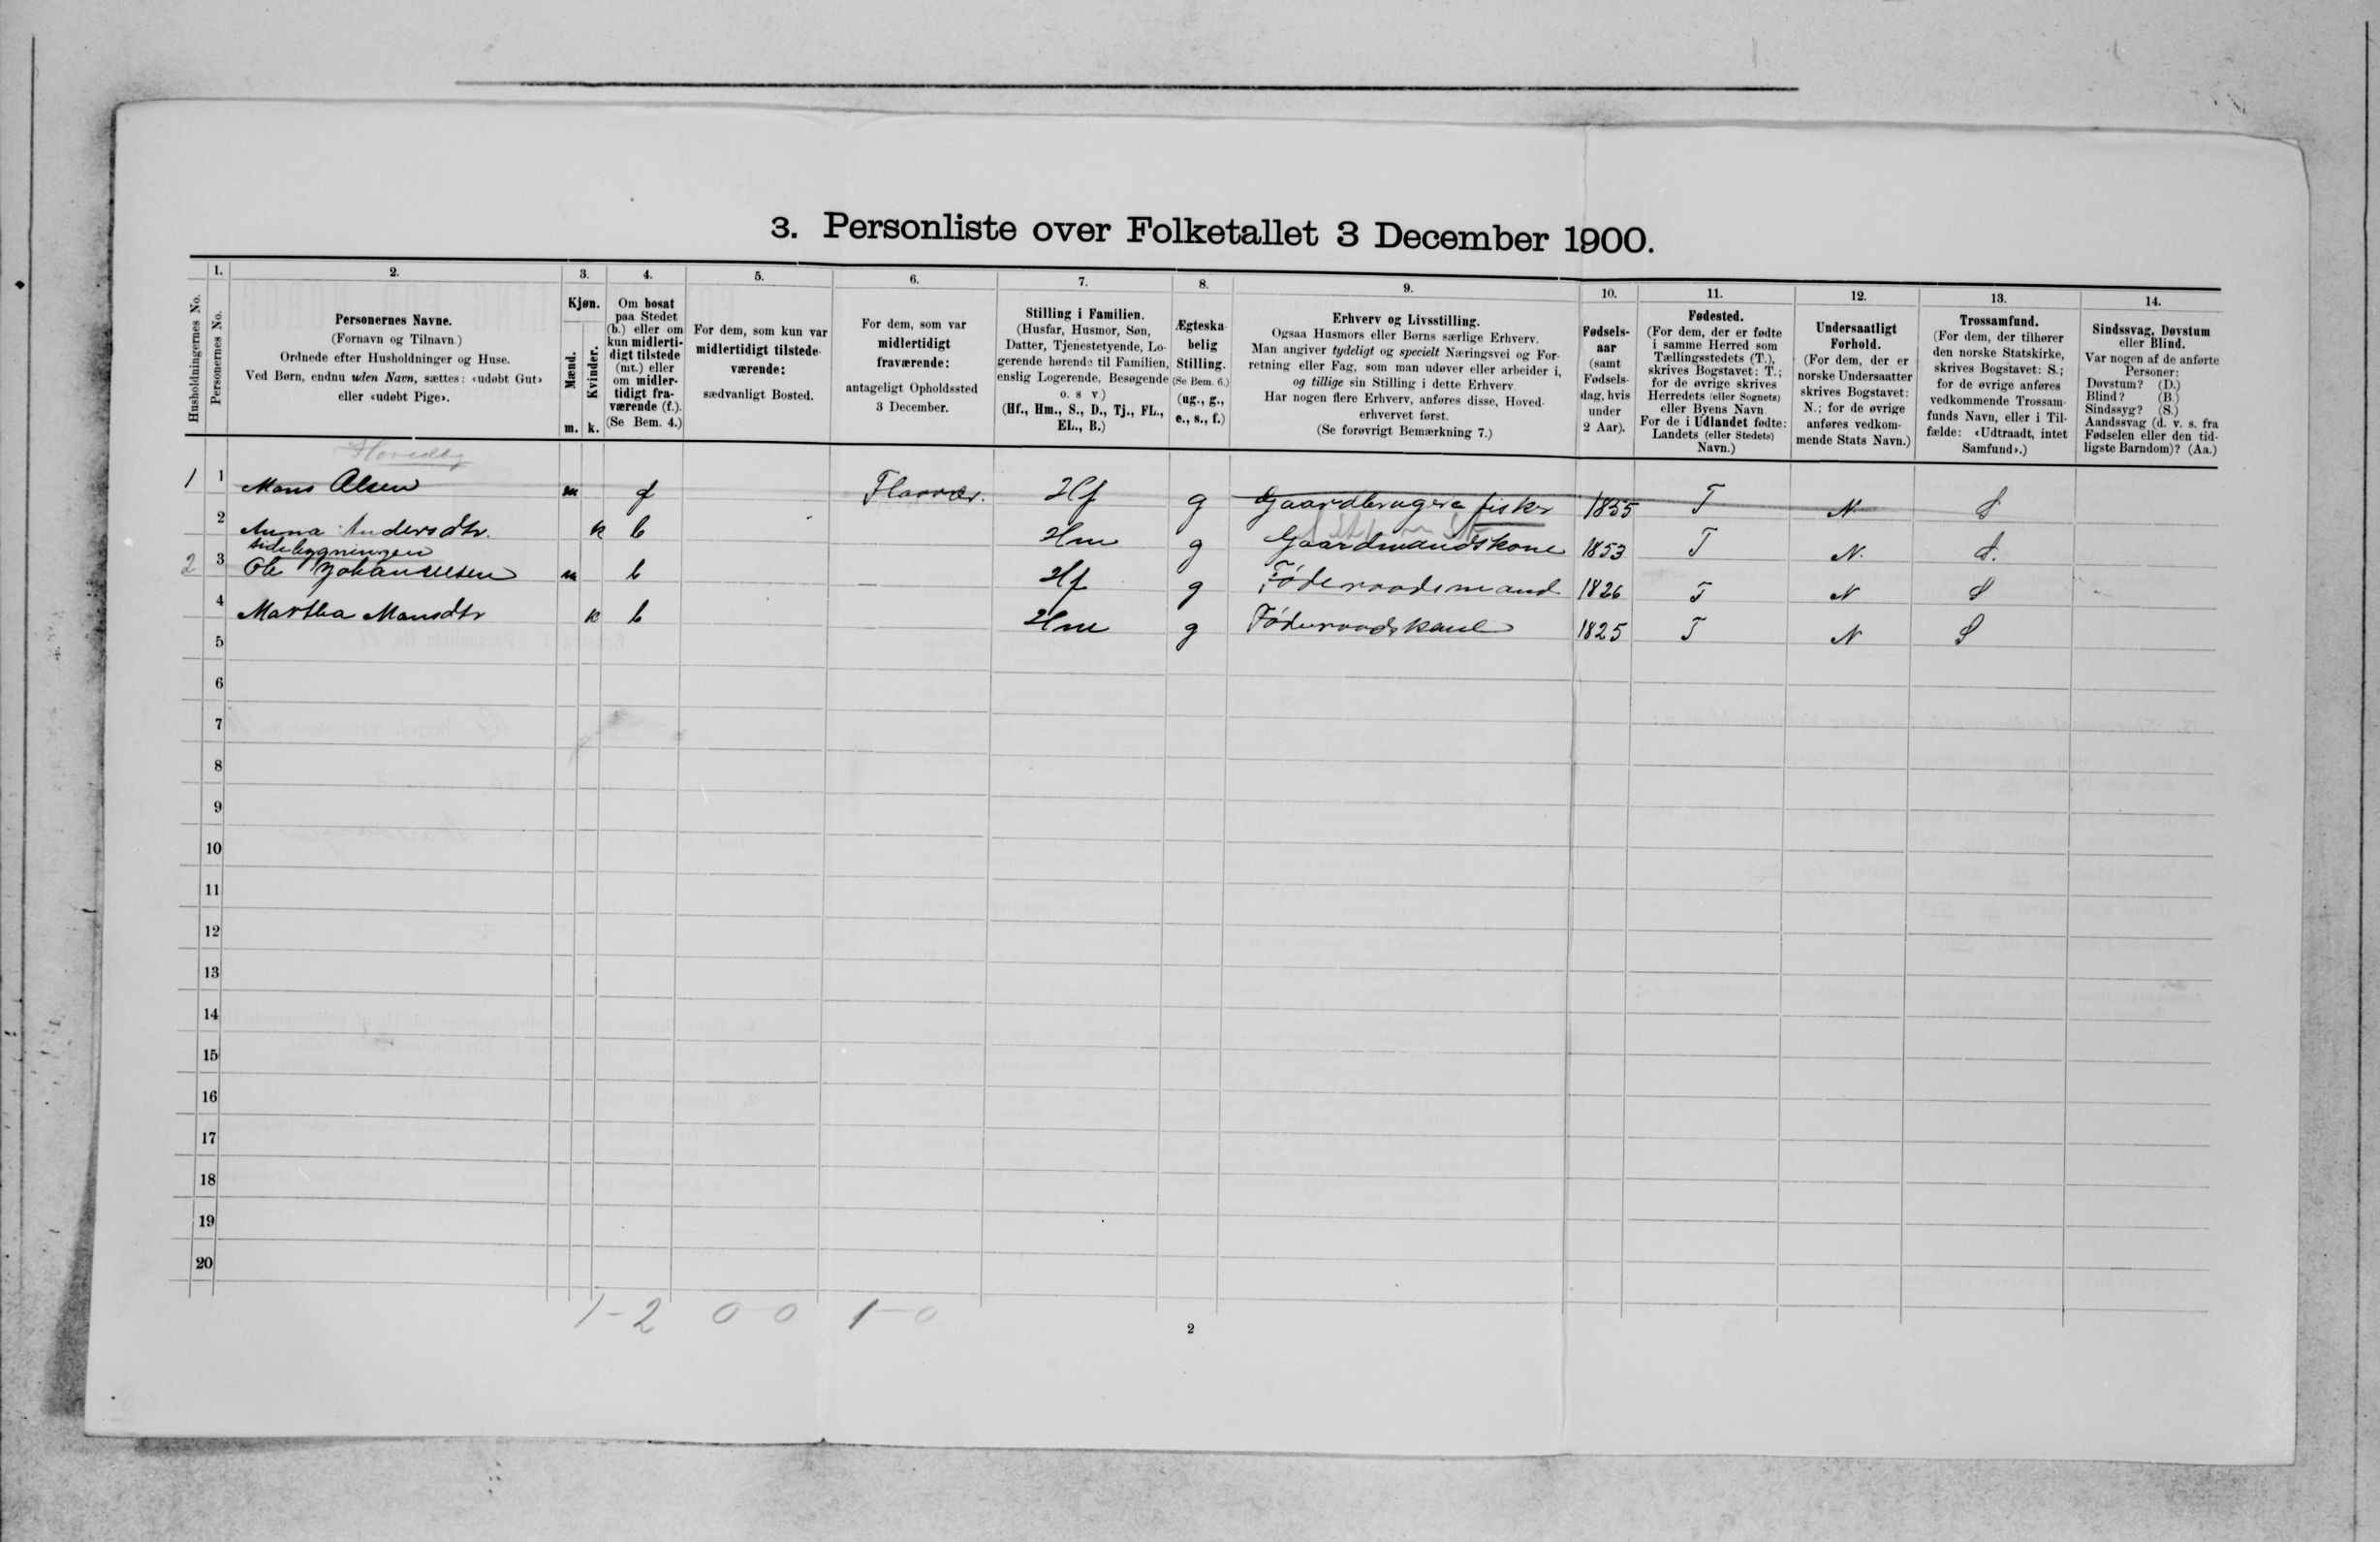 3. Personliste over Folketallet 3 December 1900.
1. 2. 3. 4. 5. 6. 7. 8. 9. 10. 11. 12. 13. 14.
Husholdningernes No.
Personernes No.
Personernes Navne.
(Fornavn og Tilnavn.)
Ordnede efter Husholdninger og Huse.
Ved Børn, endnu uden Navn, sættes: «udøbt Gut»
eller «udøbt Pige».
Kjøn.
Mænd.
Kvinder.
m. k.
Om bosat
paa Stedet
(b.) eller om
kun midlerti-
digt tilstede
(mt.) eller
om midler-
tidigt fra-
værende (f.).
(Se Bem. 4.)
For dem, som kun var
midlertidigt tilstede-
værende:
sædvanligt Bosted.
For dem, som var
midlertidigt
fraværende:
antageligt Opholdssted
3 December.
Stilling i Familien.
(Husfar, Husmor, Søn,
Datter, Tjenestetyende, Lo-
gerende hørende til Familien,
enslig Logerende, Besøgende
o. s v.)
(Hf., Hm., S., D., Tj., FL.,
EL., B.)
Ægteska
belig
Stilling.
(Se Bem. 6.)
(ug., g.,
e., s., f.)
Erhverv og Livsstilling.
Ogsaa Husmors eller Børns særlige Erhverv.
Man angiver tydeligt og specielt Næringsvei og For-
retning eller Fag, som man udøver eller arbeider i,
og tillige sin Stilling i dette Erhverv.
Har nogen flere Erhverv, anføres disse, Hoved-
erhvervet først.
(Se forøvrigt Bemærkning 7.)
Fødsels-
aar
(samt
Fødsels-
dag, hvis
under
2 Aar).
Fødested.
(For dem, der er fødte
i samme Herred som
Tællingsstedets (T.),
skrives Bogstavet: T.;
for de øvrige skrives
Herredets (eller Sognets)
eller Byens Navn.
For de i Udlandet fødte:
Landets (eller Stedets)
Navn.)
Undersaatligt
Forhold.
(For dem, der er
norske Undersaatter
skrives Bogstavet:
N.; for de øvrige
anføres vedkom-
mende Stats Navn.)
Trossamfund.
(For dem, der tilhører
den norske Statskirke,
skrives Bogstavet: S.;
for de øvrige anføres
vedkommende Trossam-
funds Navn, eller i Til-
fælde: «Udtraadt, intet
Samfund».)
Sindssvag, Døvstum
eller Blind.
Var nogen af de anførte
Personer:
Døvstum? (D.)
Blind? (B.)
Sindssyg? (S.)
Aandssvag (d. v. s. fra
Fødselen eller den tid-
ligste Barndom)? (Aa.)
Hovedbg
1 1 Mons Olsen m f Flavær. Hf g Gaardbruger & fisker 1855 T N S
2 Anna Andersdtr. k b Hm g Gaardmandskone 1853 T N. S.
sidebygningen
2 3 Ole Johannesen m b Hf g Föderaadsmand 1826 T N S
4 Martha Monsdtr k b Hm g Föderaadskone 1825 T N S
5
6
7
8
9
10
11
12
13
14
15
16
17
18
19
20
1-2 0 0 1-0
2